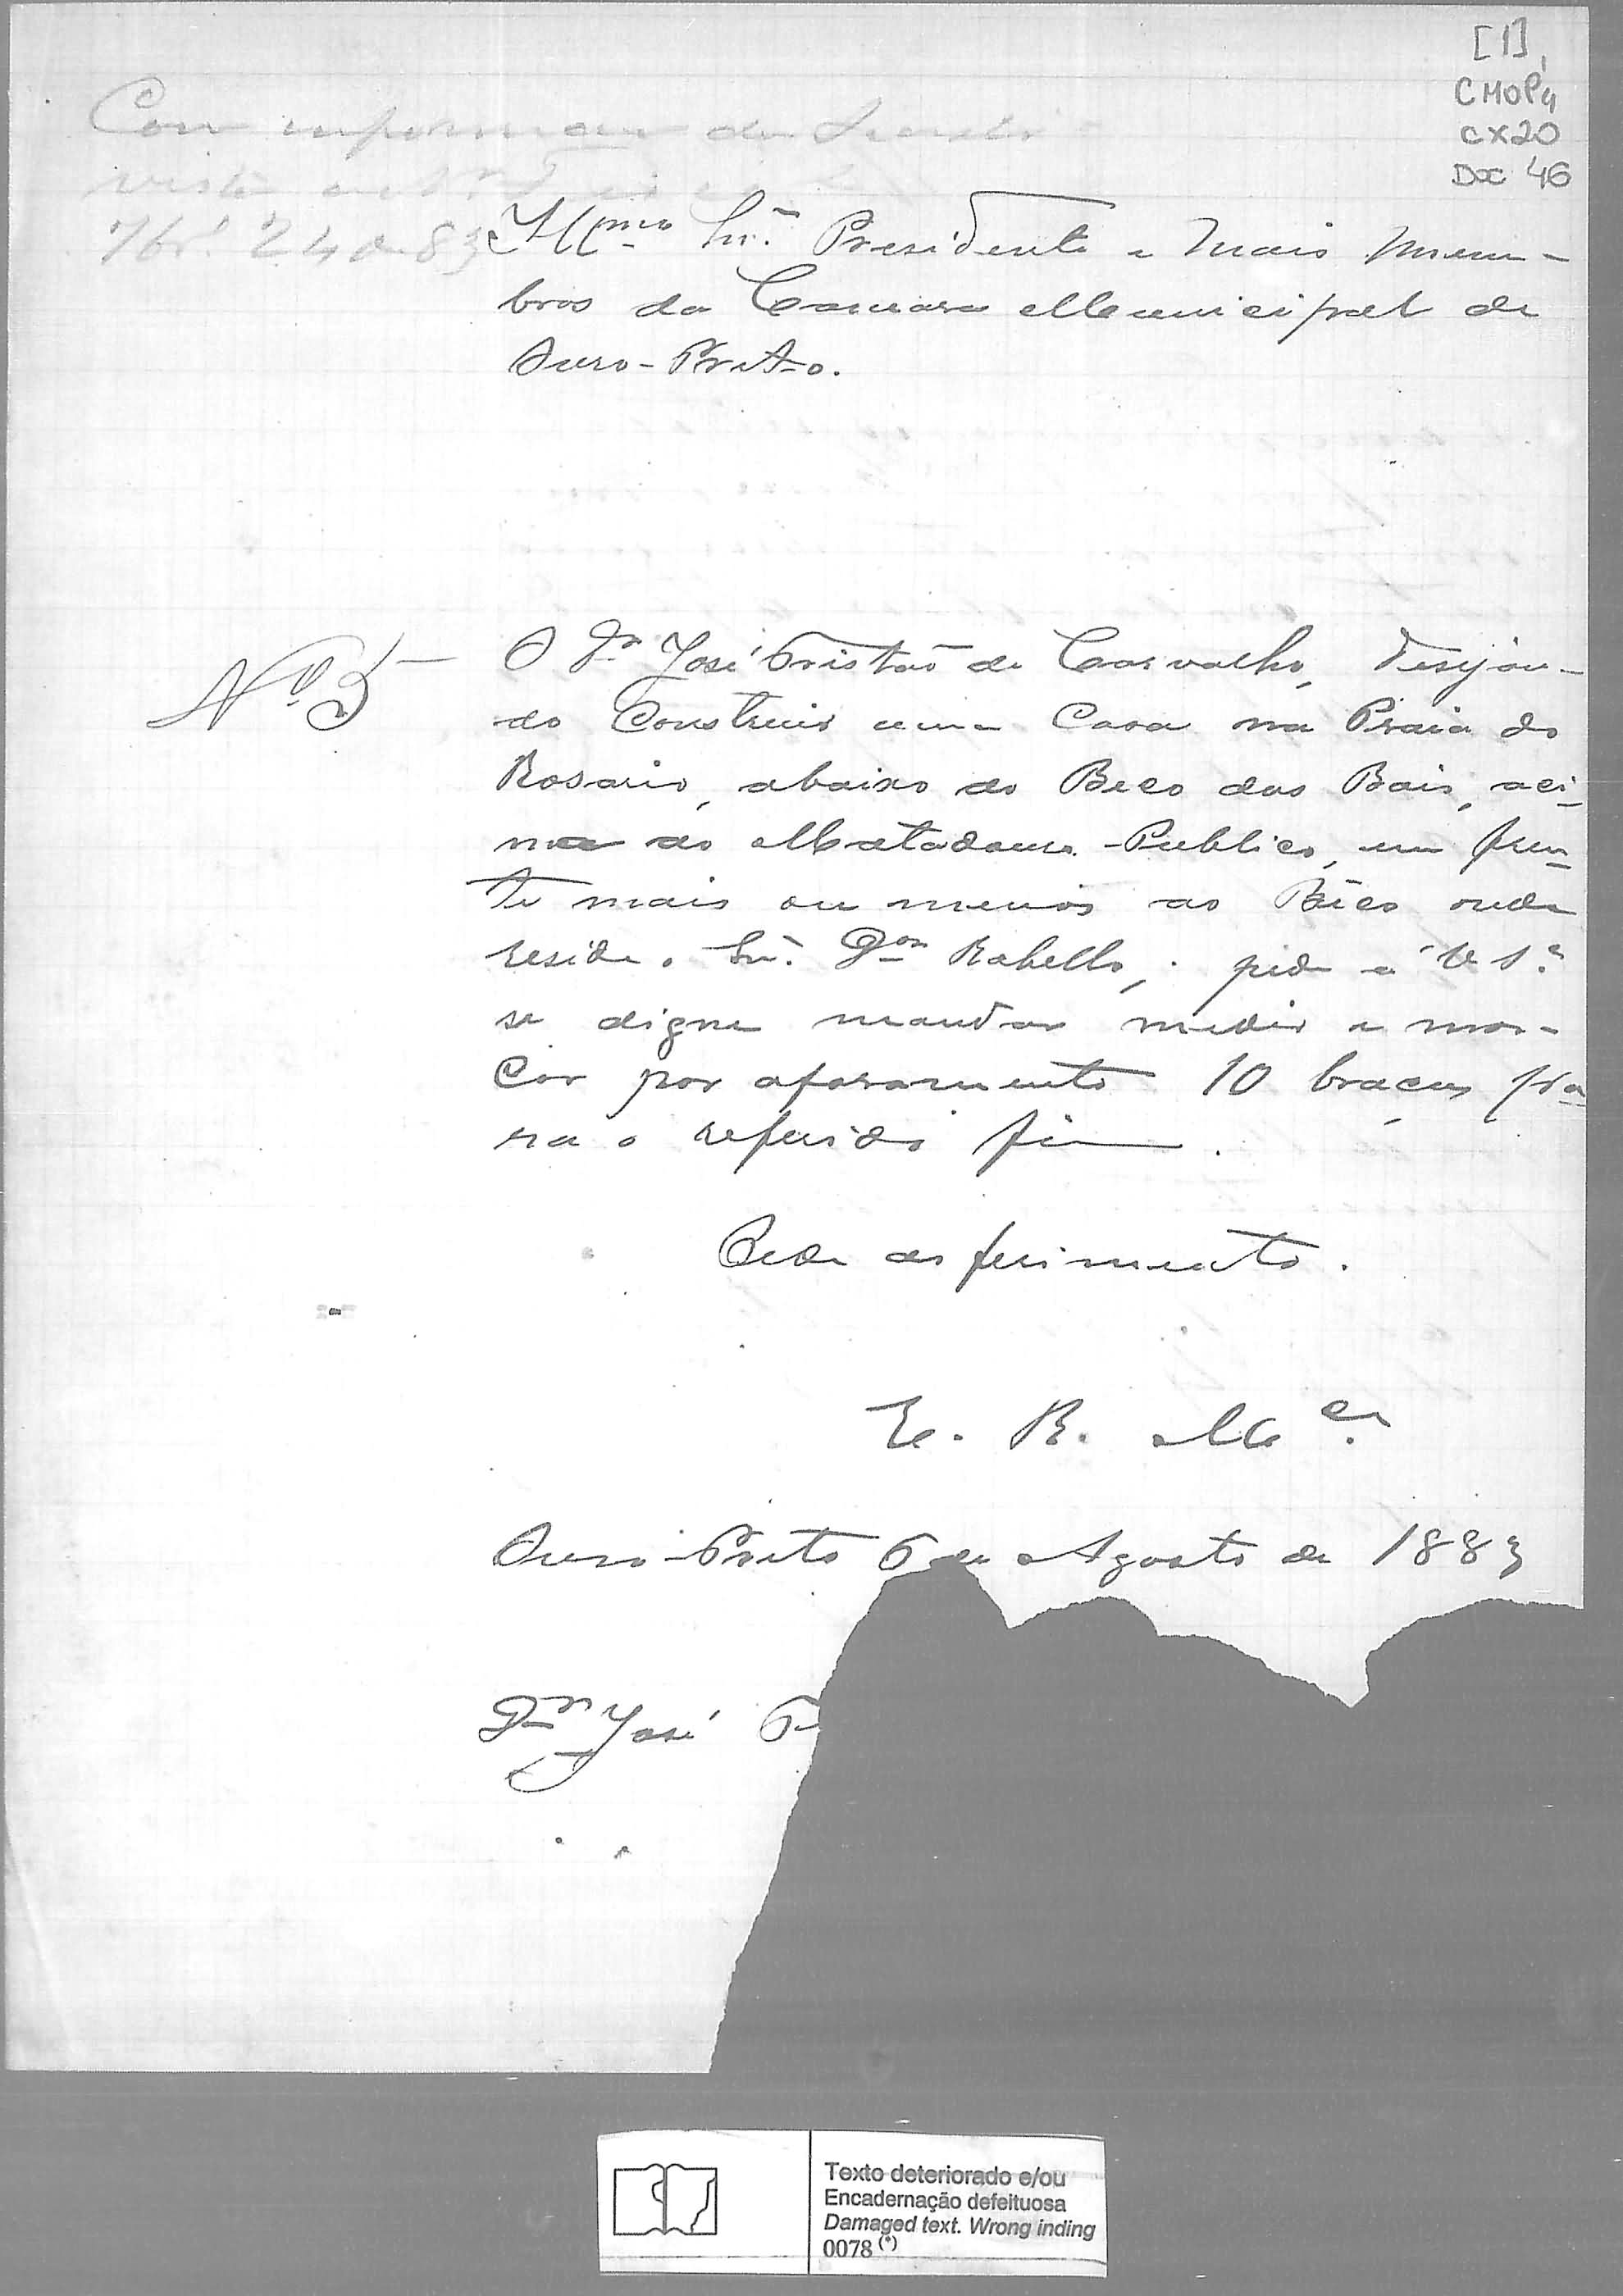 [1]
CMOP4
CX20
Doc 46
Com informação do
vista
7br.º 24 de 83
Illmo Snr. Presidente e Mais Mem-
bros da Camara Municipal de
Ouro-Preto.
Nº 3
O Dr José Tristão de Carvalho, desejan-
do Construir uma Casa na Praia do
Rosario, abaixo do Beco dos Bois, aci-
ma do Matadouro Publico, em fren-
te mais ou menos ao Bêco onde
reside o Snr. Dor Rabello, pede a V Sª
se digne mandar medir e mar-
car por aforamento 10 braças pa-
ra o referido fim.
Pede deferimento.
E. R. Mce.
Ouro-Preto 6 de Agosto de 1883
Dr José T
Texto deteriorado e/ou
Encadernação defeituosa
Damaged text. Wrong inding
0078 (*)